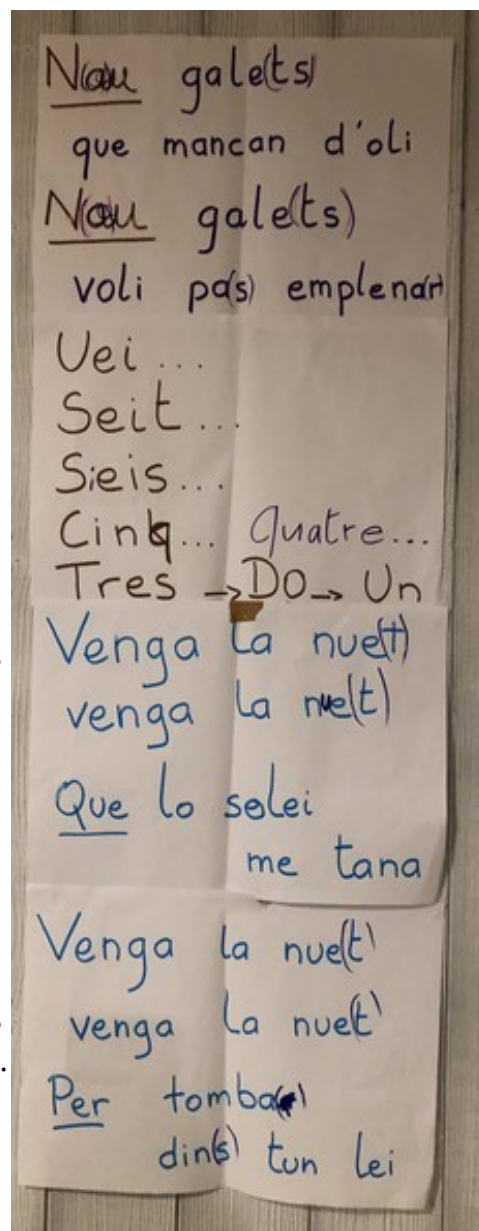 Nau gale(ts)
que mancan d'oli
Nau gale(ts)
voli pa(s) emplena(r)
Uei ...
Seit ...
Sieis ...
Cinq ... Quatre...
Tres → Do → Un
Venga la nue(t)
venga la nue(t)
Que lo solei
me tana
Venga la nue(t)
venga la nue(t)
Per tomba(r)
din(s) tun lei